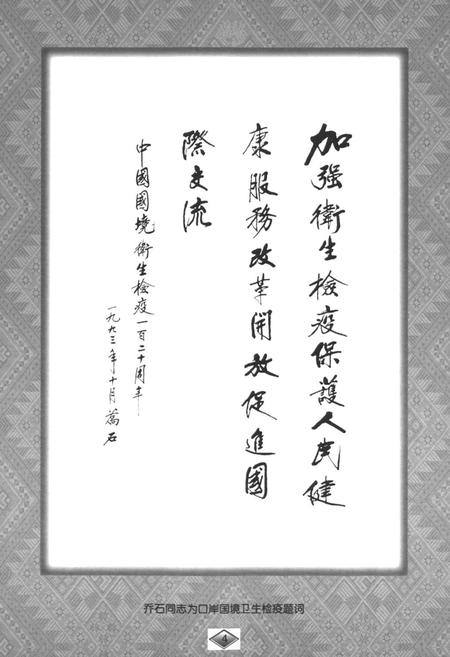 加强衛生檢疫保護人民健
康服務改革開放促進國
際交流
中國國境衛生檢疫一百二十周年
一九九三年十月喬石
乔石同志为口岸国境卫生检疫题词
4